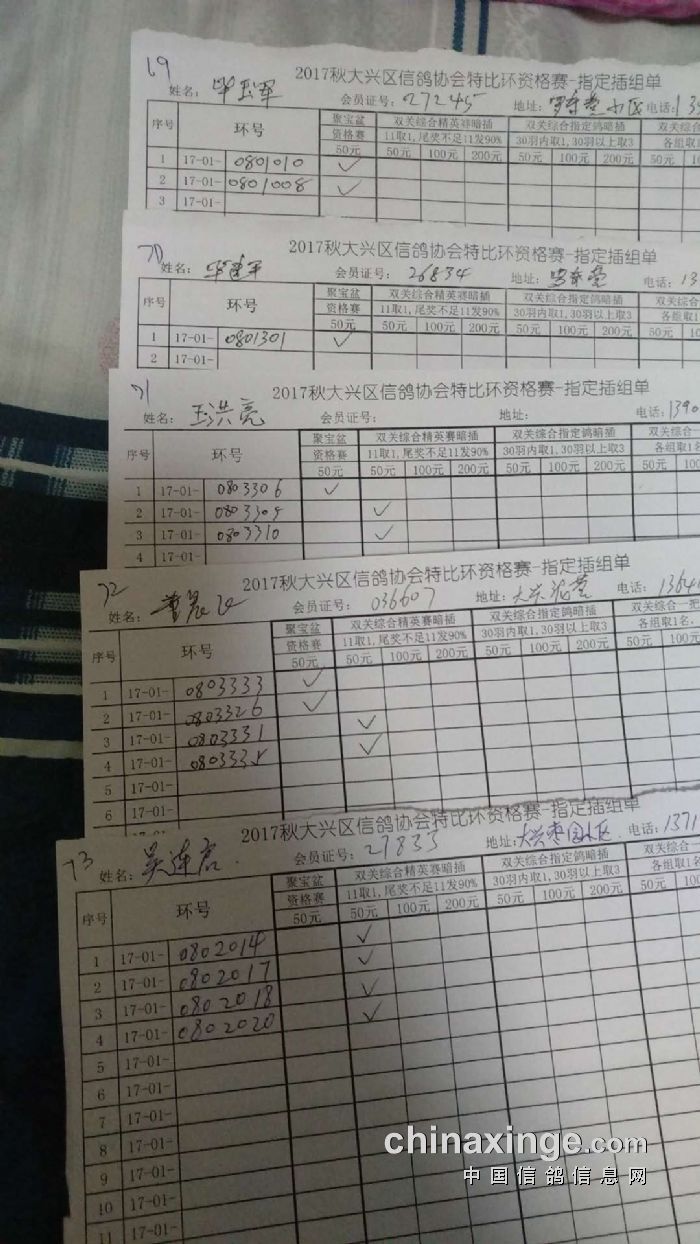 69
2017秋大兴区信鸽协会特比环资格赛-指定插组单
姓名: 毕玉军 会员证号: 27245 地址: 小区 电话: 13
序号 环号 聚宝盆 双关综合精英赛暗插 双关综合指定鸽暗插 双关综
资格赛 11取1,尾奖不足11发90% 30羽内取1,30羽以上取3 各组取1
50元 50元 100元 200元 50元 100元 200元 50元 10
1 17-01- 0801010 ✓
2 17-01- 0801008 ✓
3 17-01-
70
2017秋大兴区信鸽协会特比环资格赛-指定插组单
姓名: 毕建军 会员证号: 26834 地址: 电话: 13
序号 环号 聚宝盆 双关综合精英赛暗插 双关综合指定鸽暗插 双关综合
资格赛 11取1,尾奖不足11发90% 30羽内取1,30羽以上取3 各组取1
50元 50元 100元 200元 50元 100元 200元 50元 10
1 17-01- 0801301 ✓
2 17-01-
71
2017秋大兴区信鸽协会特比环资格赛-指定插组单
姓名: 王洪亮 会员证号: 地址: 电话: 1390
序号 环号 聚宝盆 双关综合精英赛暗插 双关综合指定鸽暗插 双关综合一
资格赛 11取1,尾奖不足11发90% 30羽内取1,30羽以上取3 各组取1名
50元 50元 100元 200元 50元 100元 200元 50元 100
1 17-01- 0803306 ✓
2 17-01- 0803305 ✓
3 17-01- 0803310 ✓
4 17-01-
72
2017秋大兴区信鸽协会特比环资格赛-指定插组单
姓名: 会员证号: 036607 地址: 大兴 电话: 1364
序号 环号 聚宝盆 双关综合精英赛暗插 双关综合指定鸽暗插 双关综合一
资格赛 11取1,尾奖不足11发90% 30羽内取1,30羽以上取3 各组取1名,
50元 50元 100元 200元 50元 100元 200元 50元 100
1 17-01- 0803333 ✓
2 17-01- 0803326 ✓
3 17-01- 0803331 ✓
4 17-01- 0803335 ✓
5 17-01-
6 17-01-
73
2017秋大兴区信鸽协会特比环资格赛-指定插组单
姓名: 吴连启 会员证号: 27833 地址: 大兴枣园小区 电话: 1371
序号 环号 聚宝盆 双关综合精英赛暗插 双关综合指定鸽暗插 双关综合
资格赛 11取1,尾奖不足11发90% 30羽内取1,30羽以上取3 各组取1名
50元 50元 100元 200元 50元 100元 200元 50元 100
1 17-01- 0802014 ✓
2 17-01- 0802017 ✓
3 17-01- 0802018 ✓
4 17-01- 0802020 ✓
5 17-01-
6 17-01-
7 17-01-
8 17-01-
9 17-01-
10 17-01-
11 17-01-
chinaxinge.com
中国信鸽信息网